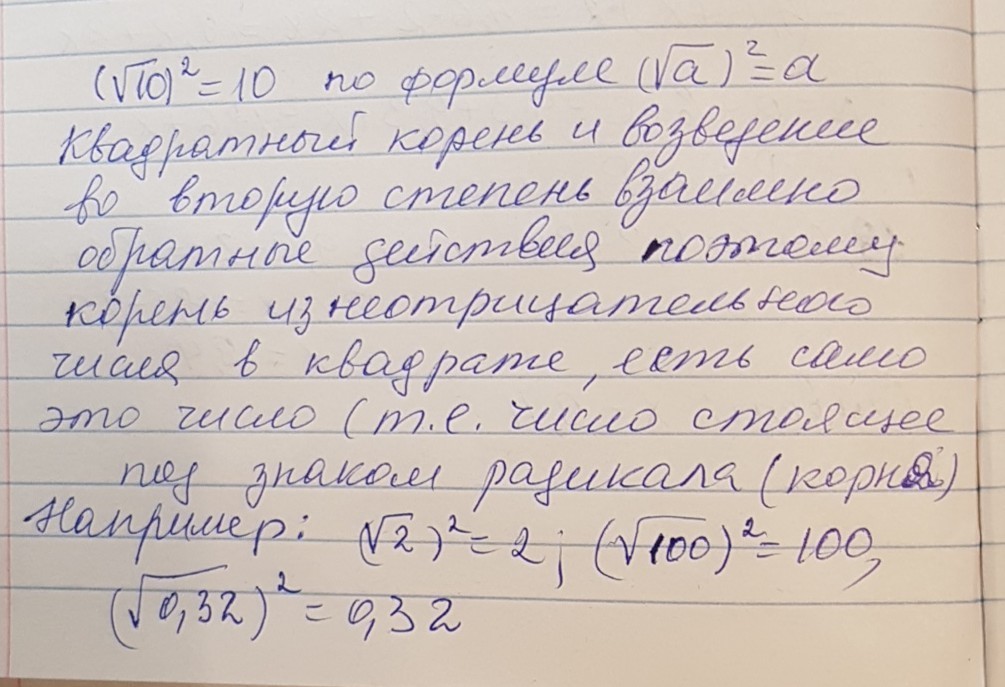 (√10)² = 10 по формуле (√a)² = a
Квадратный корень и возведение
во вторую степень взаимно
обратные действия поэтому
корень из неотрицательного
числа в квадрате, есть само
это число (т.е. число стоящее
под знаком радикала (корня)
Например: (√2)² = 2; (√100)² = 100,
(√0,32)² = 0,32